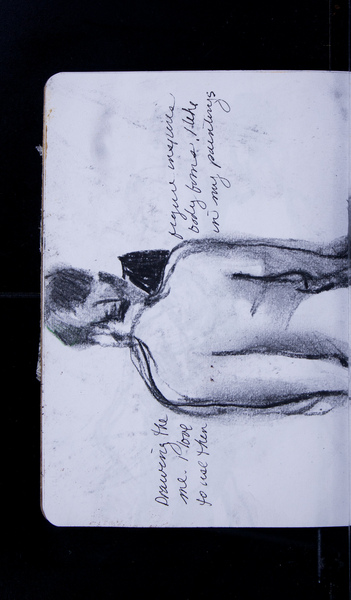 Drawing the figure inspires
me. I love body forms. I like
to use then in my paintings